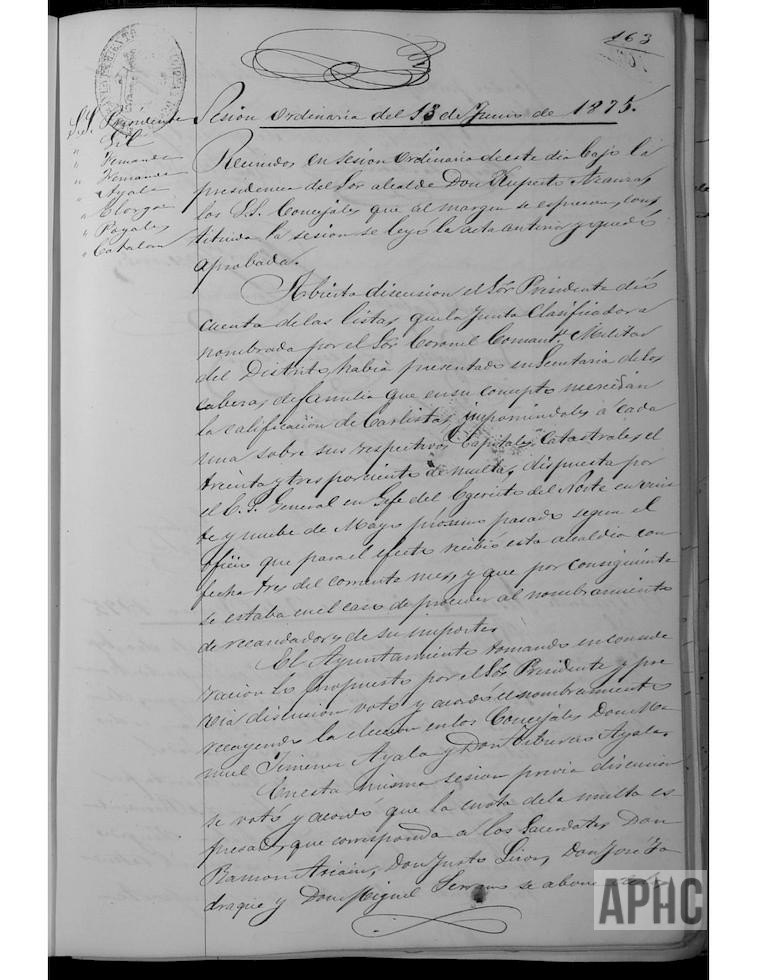 163
Sesión ordinaria del 13 de Junio de 1875.
SS. Presidente
" Gil
" Fernandez
" Fernandez
" Ayala
" Royales
" Catalan
Reunidos en sesion ordinaria de este dia bajo la
presidencia del Sor alcalde Don Ruperto Aranra,
los S.S. Concejales que al margen se espresan, cons
tituida la sesion se leyó la acta anterior y quedó
aprobada.
Abierta discusion el Sor Presidente dió
cuenta de las listas que la Junta Clasificadora
nombrada por el Sor Coronel Comante Militar
del Distrito, habia presentado en Secretaria de los
cabezas de familia que en su concepto merecian
la calificacion de Carlistas, imponiendoles á cada
uno sobre sus respectivos Capitales Catastrales el
treinta y tres por ciento de multa, dispuesta por
el E. S. General en Gefe del Egercito del Norte en vein
te y nuebe de Mayo prósimo pasado segun el
oficio que para el efecto recibió esta alcaldia con
fecha tres del corriente mes, y que por consiguiente
se estaba en el caso de proceder al nombramiento
de recaudadores de su importe.
El Ayuntamiento tomando en conside
racion lo propuesto por el Sor Presidente y pre
via discusion votó y acordó el nombramiento
recayendo la eleccion en los Concejales Don Ma
nuel Jimenez Ayala y Don Tiburcio Ayala.
En esta misma sesion previa discusion
se votó y acordó que la cuota de la multa es
presada que corresponda á los Sacerdotes Don
Ramon Ariain, Don Justo Liron, Don José Ja
draque y Don Miguel Serrano se abone
APHC